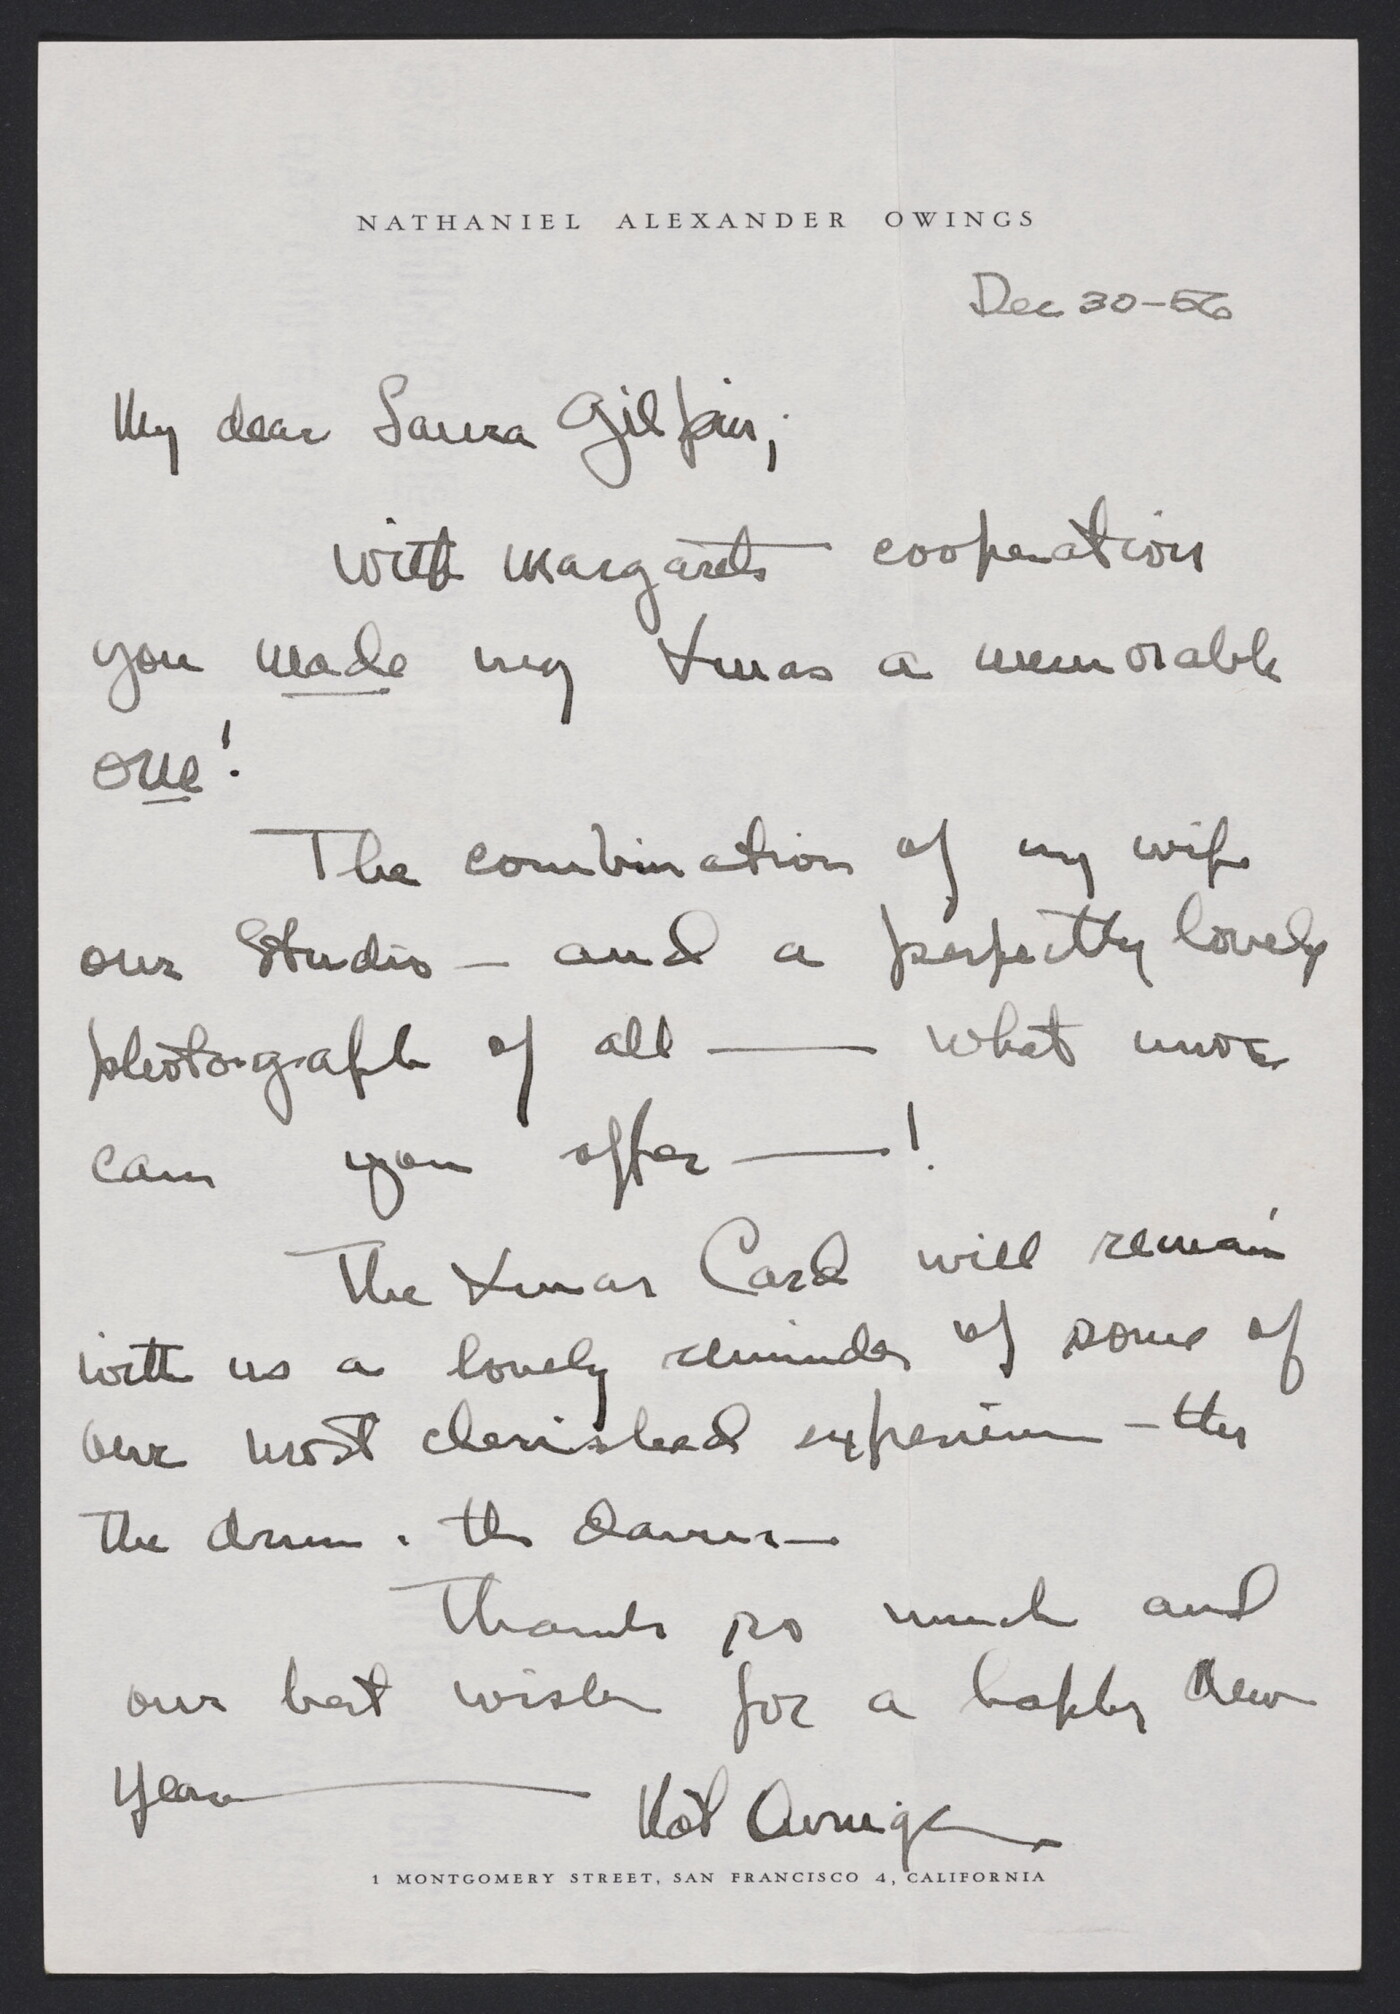 NATHANIEL ALEXANDER OWINGS
Dec 30-56
My dear Laura Gilpin;
With Margarets cooperation
you made my Xmas a memorable
one!
The combination of my wife
our Studio — and a perfectly lovely
photograph of all — what more
can you offer — !
The Xmas Card will remain
with us a lovely reminder of some of
our most cherished experiences —
the drum. the dances —
Thanks so much and
our best wishes for a happy New
Year — Nat Owings
1 MONTGOMERY STREET, SAN FRANCISCO 4, CALIFORNIA